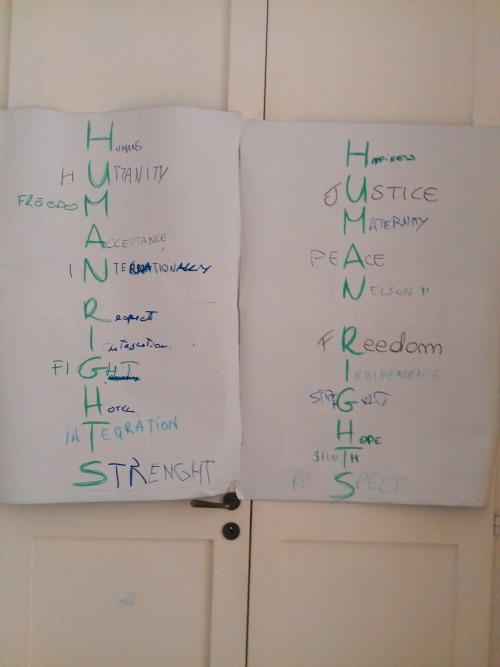 HUMANS
HUMANITY
FREEDOM
ACCEPTANCE
INTERNATIONALLY
Respect
Integration
FIGHT
HOTEL
INTEGRATION
STRENGHT
HAPINESS
JUSTICE
MATERNAY
PEACE
NELSON M
FReedom
INDIPENDENCE
HOPE
RESPECT